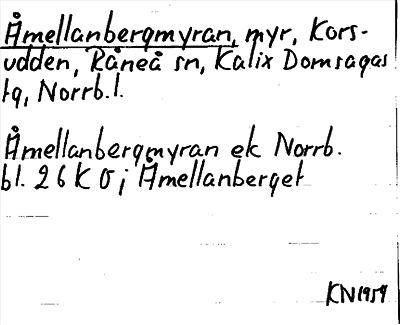 Åmellanbergmyran, myr, Kors-
udden, Råneå sn, Kalix Domsagas
tg, Norrb. l.
Åmellanbergmyran ek Norrb.
bl. 26 K Ö; Åmellanberget
KN 1959